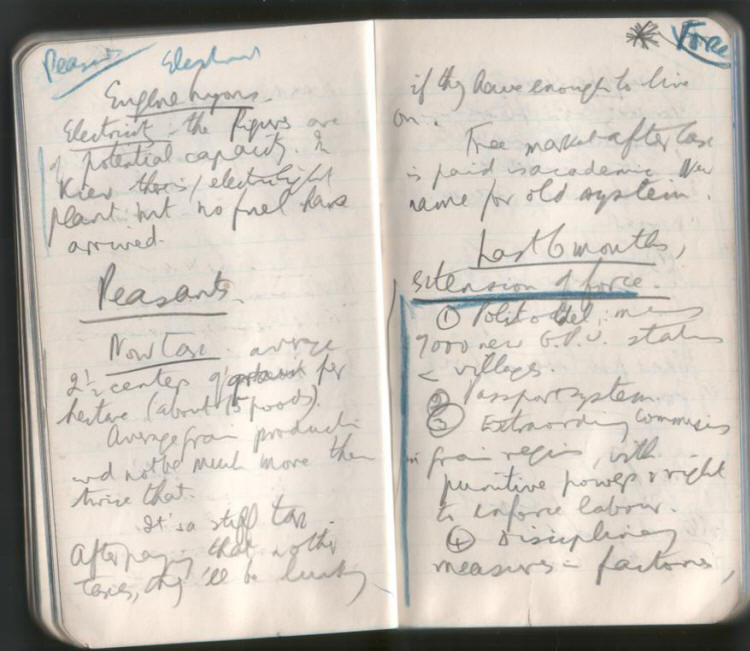 Peasants Elephant
Eugene Lyons.
Electricit - the figures are
of potential capacity. In
Kiev there's / electrilight
plant but no fuel has
arrived.
Peasants.
Now tax average
2½ centers of per
hectare (about 15 poods).
Average grain producti
wd not be much more than
thrice that.
It's a stiff tax.
After paying that & other
taxes, they'll be lucky
Force
if they have enough to live
on.
Free market after tax
is paid is academic. New
name for old system.
Last 6 months,
extension of force.
① Politodel, means
7000 new G.P.U. stations
villages.
② Passport system.
③ Extraording Commissions
in grain regions, with
punitive powers & right
to enforce labour.
④ Disciplinary
measures = factories,